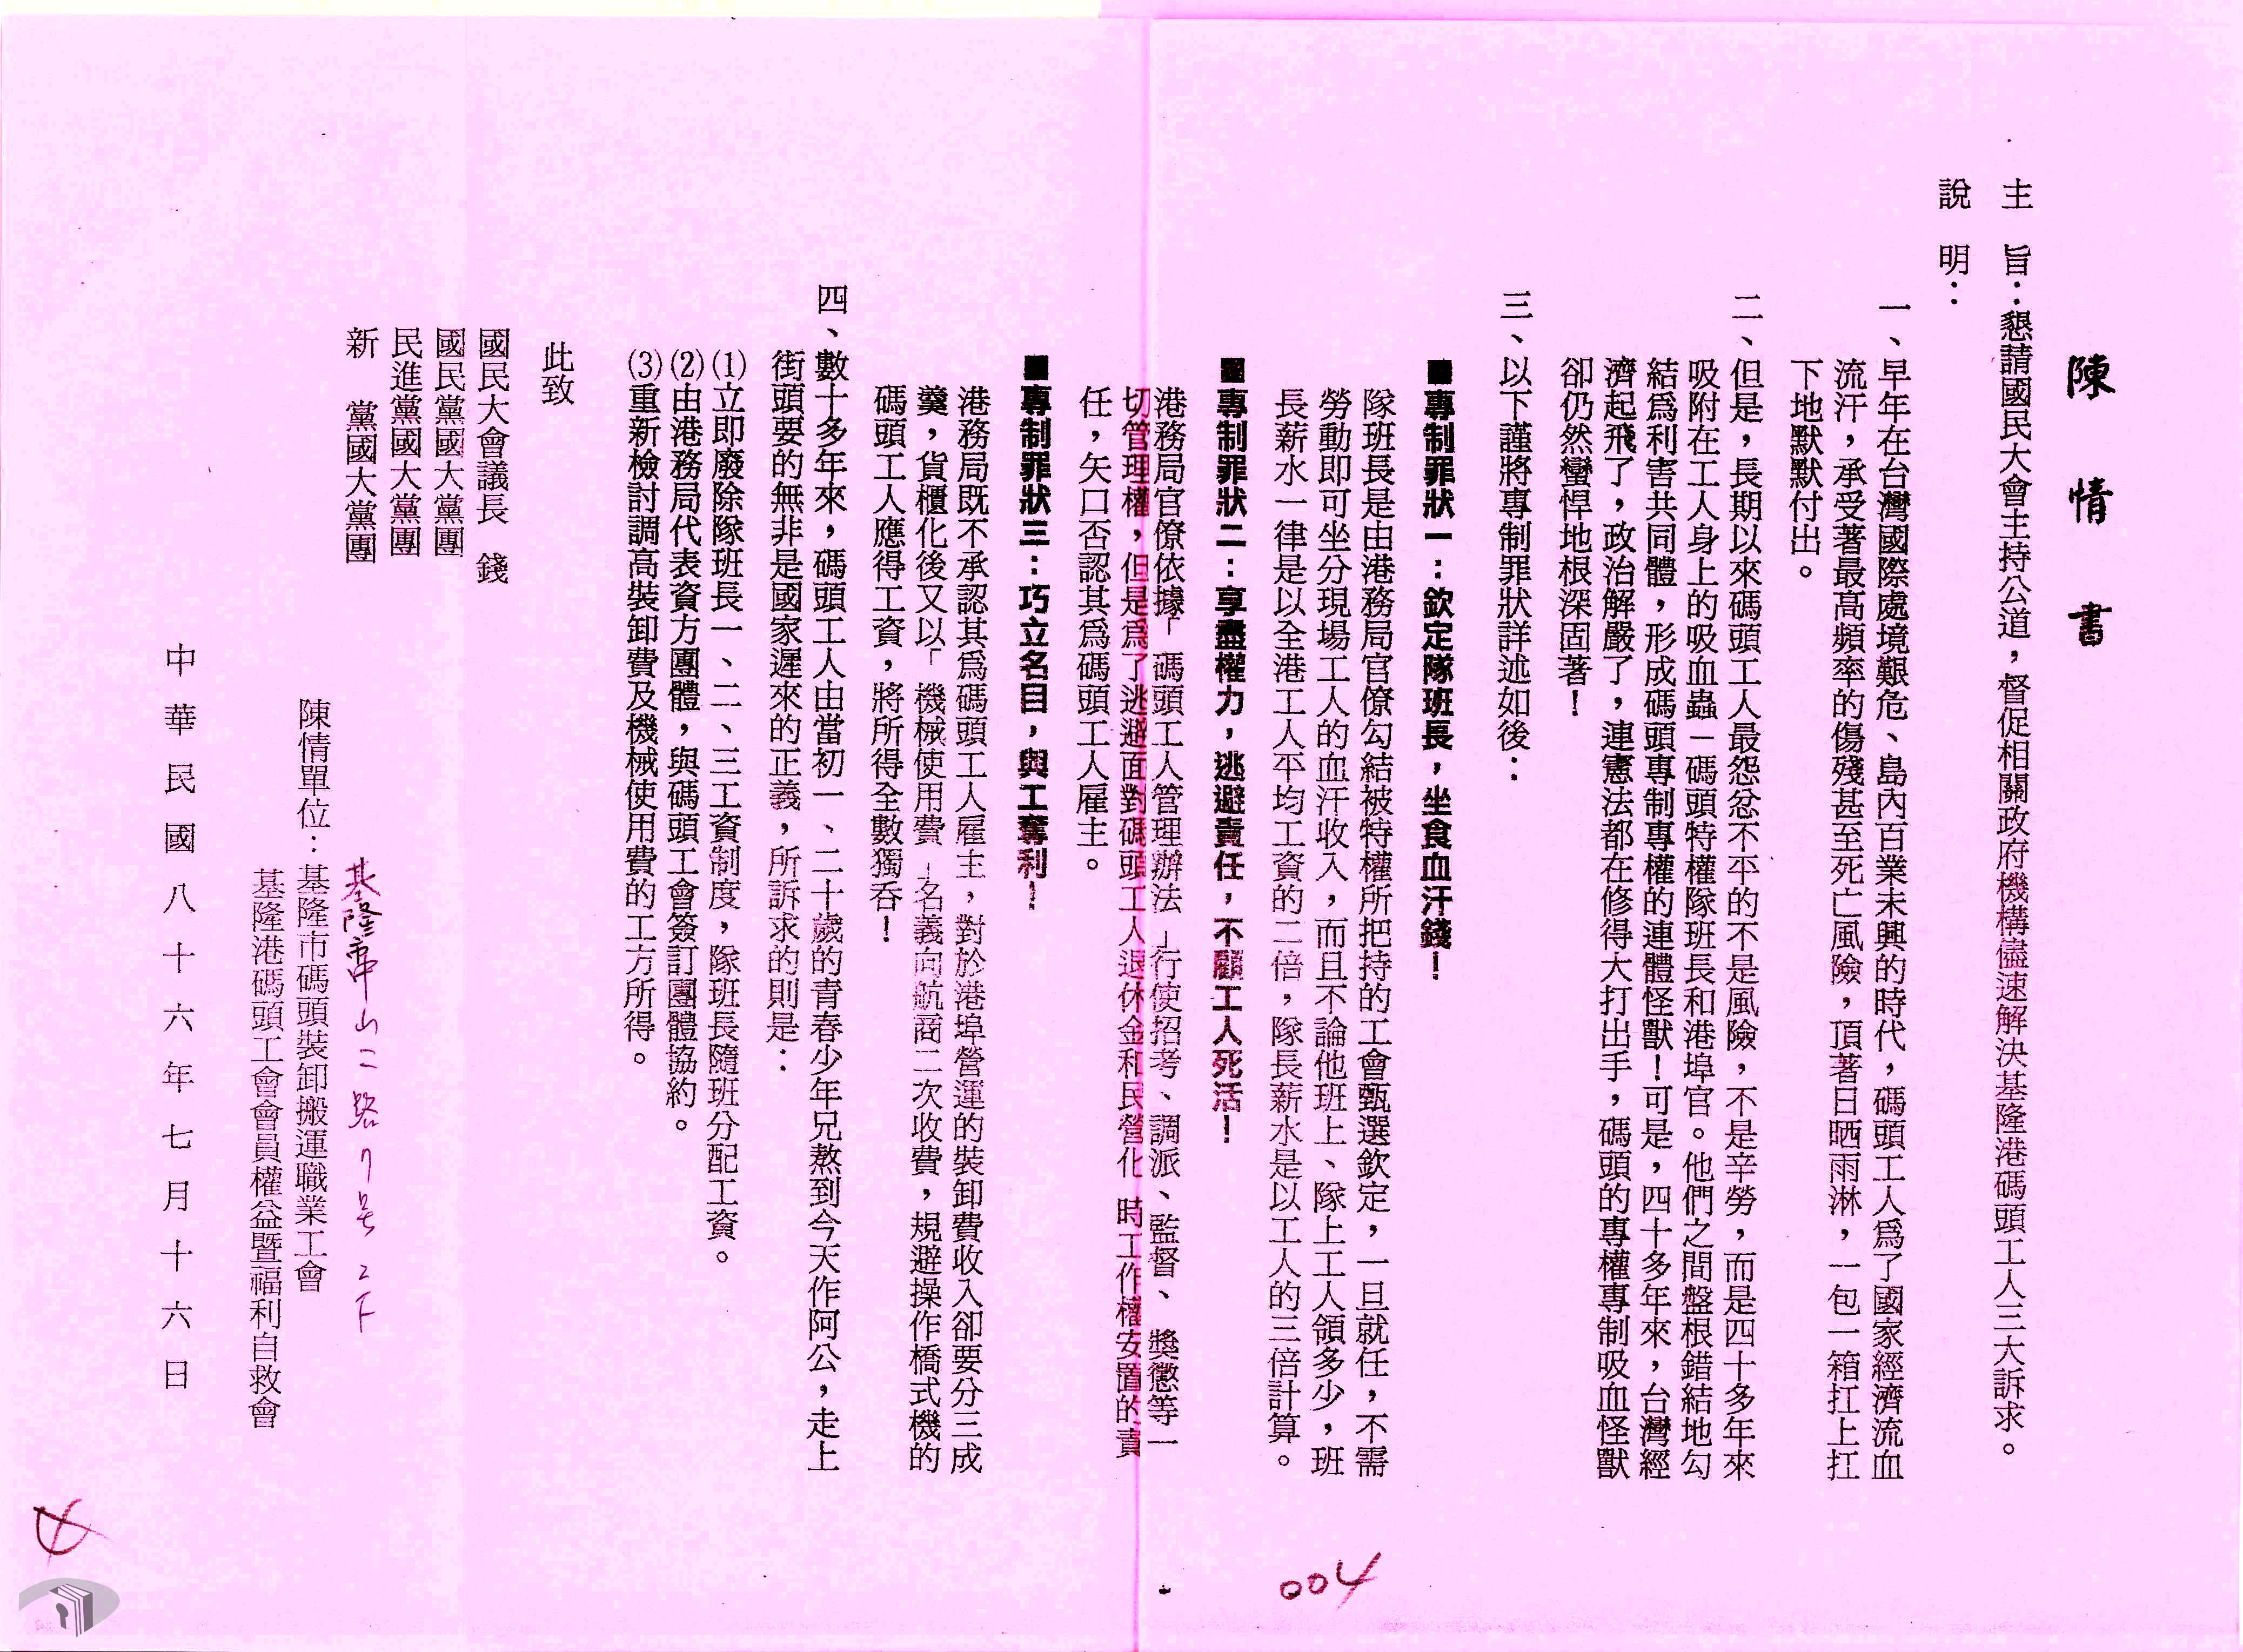 陳情書
主　旨：懇請國民大會主持公道，督促相關政府機構儘速解決基隆港碼頭工人三大訴求。
說　明：
一、早年在台灣國際處境艱危、島內百業未興的時代，碼頭工人爲了國家經濟流血
流汗，承受著最高頻率的傷殘甚至死亡風險，頂著日晒雨淋，一包一箱扛上扛
下地默默付出。
二、但是，長期以來碼頭工人最怨忿不平的不是風險，不是辛勞，而是四十多年來
吸附在工人身上的吸血蟲－碼頭特權隊班長和港埠官。他們之間盤根錯結地勾
結爲利害共同體，形成碼頭專制專權的連體怪獸！可是，四十多年來，台灣經
濟起飛了，政治解嚴了，連憲法都在修得大打出手，碼頭的專權專制吸血怪獸
卻仍然蠻悍地根深固著！
三、以下謹將專制罪狀詳述如後：
■專制罪狀一：欽定隊班長，坐食血汗錢！
隊班長是由港務局官僚勾結被特權所把持的工會甄選欽定，一旦就任，不需
勞動即可坐分現場工人的血汗收入，而且不論他班上、隊上工人領多少，班
長薪水一律是以全港工人平均工資的二倍，隊長薪水是以工人的三倍計算。
■專制罪狀二：享盡權力，逃避責任，不顧工人死活！
港務局官僚依據「碼頭工人管理辦法」行使招考、調派、監督、獎懲等一
切管理權，但是爲了逃避面對碼頭工人退休金和民營化時工作權安置的責
任，矢口否認其爲碼頭工人雇主。
■專制罪狀三：巧立名目，與工奪利！
港務局既不承認其爲碼頭工人雇主，對於港埠營運的裝卸費收入卻要分三成
羹，貨櫃化後又以「機械使用費」名義向航商二次收費，規避操作橋式機的
碼頭工人應得工資，將所得全數獨吞！
四、數十多年來，碼頭工人由當初一、二十歲的青春少年兄熬到今天作阿公，走上
街頭要的無非是國家遲來的正義，所訴求的則是：
⑴立即廢除隊班長一、二、三工資制度，隊班長隨班分配工資。
⑵由港務局代表資方團體，與碼頭工會簽訂團體協約。
⑶重新檢討調高裝卸費及機械使用費的工方所得。
此致
國民大會議長　錢
國民黨國大黨團
民進黨國大黨團
新　黨國大黨團
基隆市中山二路7號2F
陳情單位：基隆市碼頭裝卸搬運職業工會
基隆港碼頭工會會員權益暨福利自救會
中華民國八十六年七月十六日
004